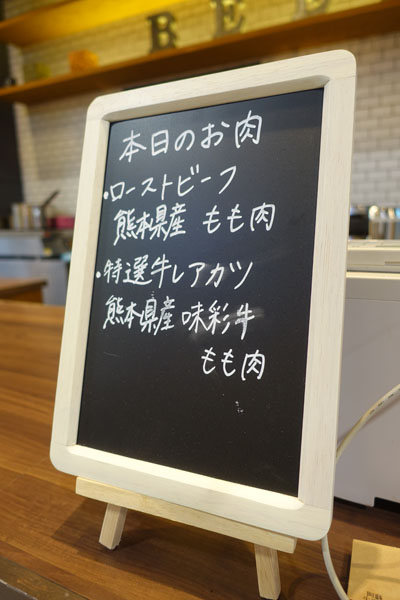 BEE
本日のお肉
・ローストビーフ
熊本県産 もも肉
・特選牛レアカツ
熊本県産 味彩牛
もも肉